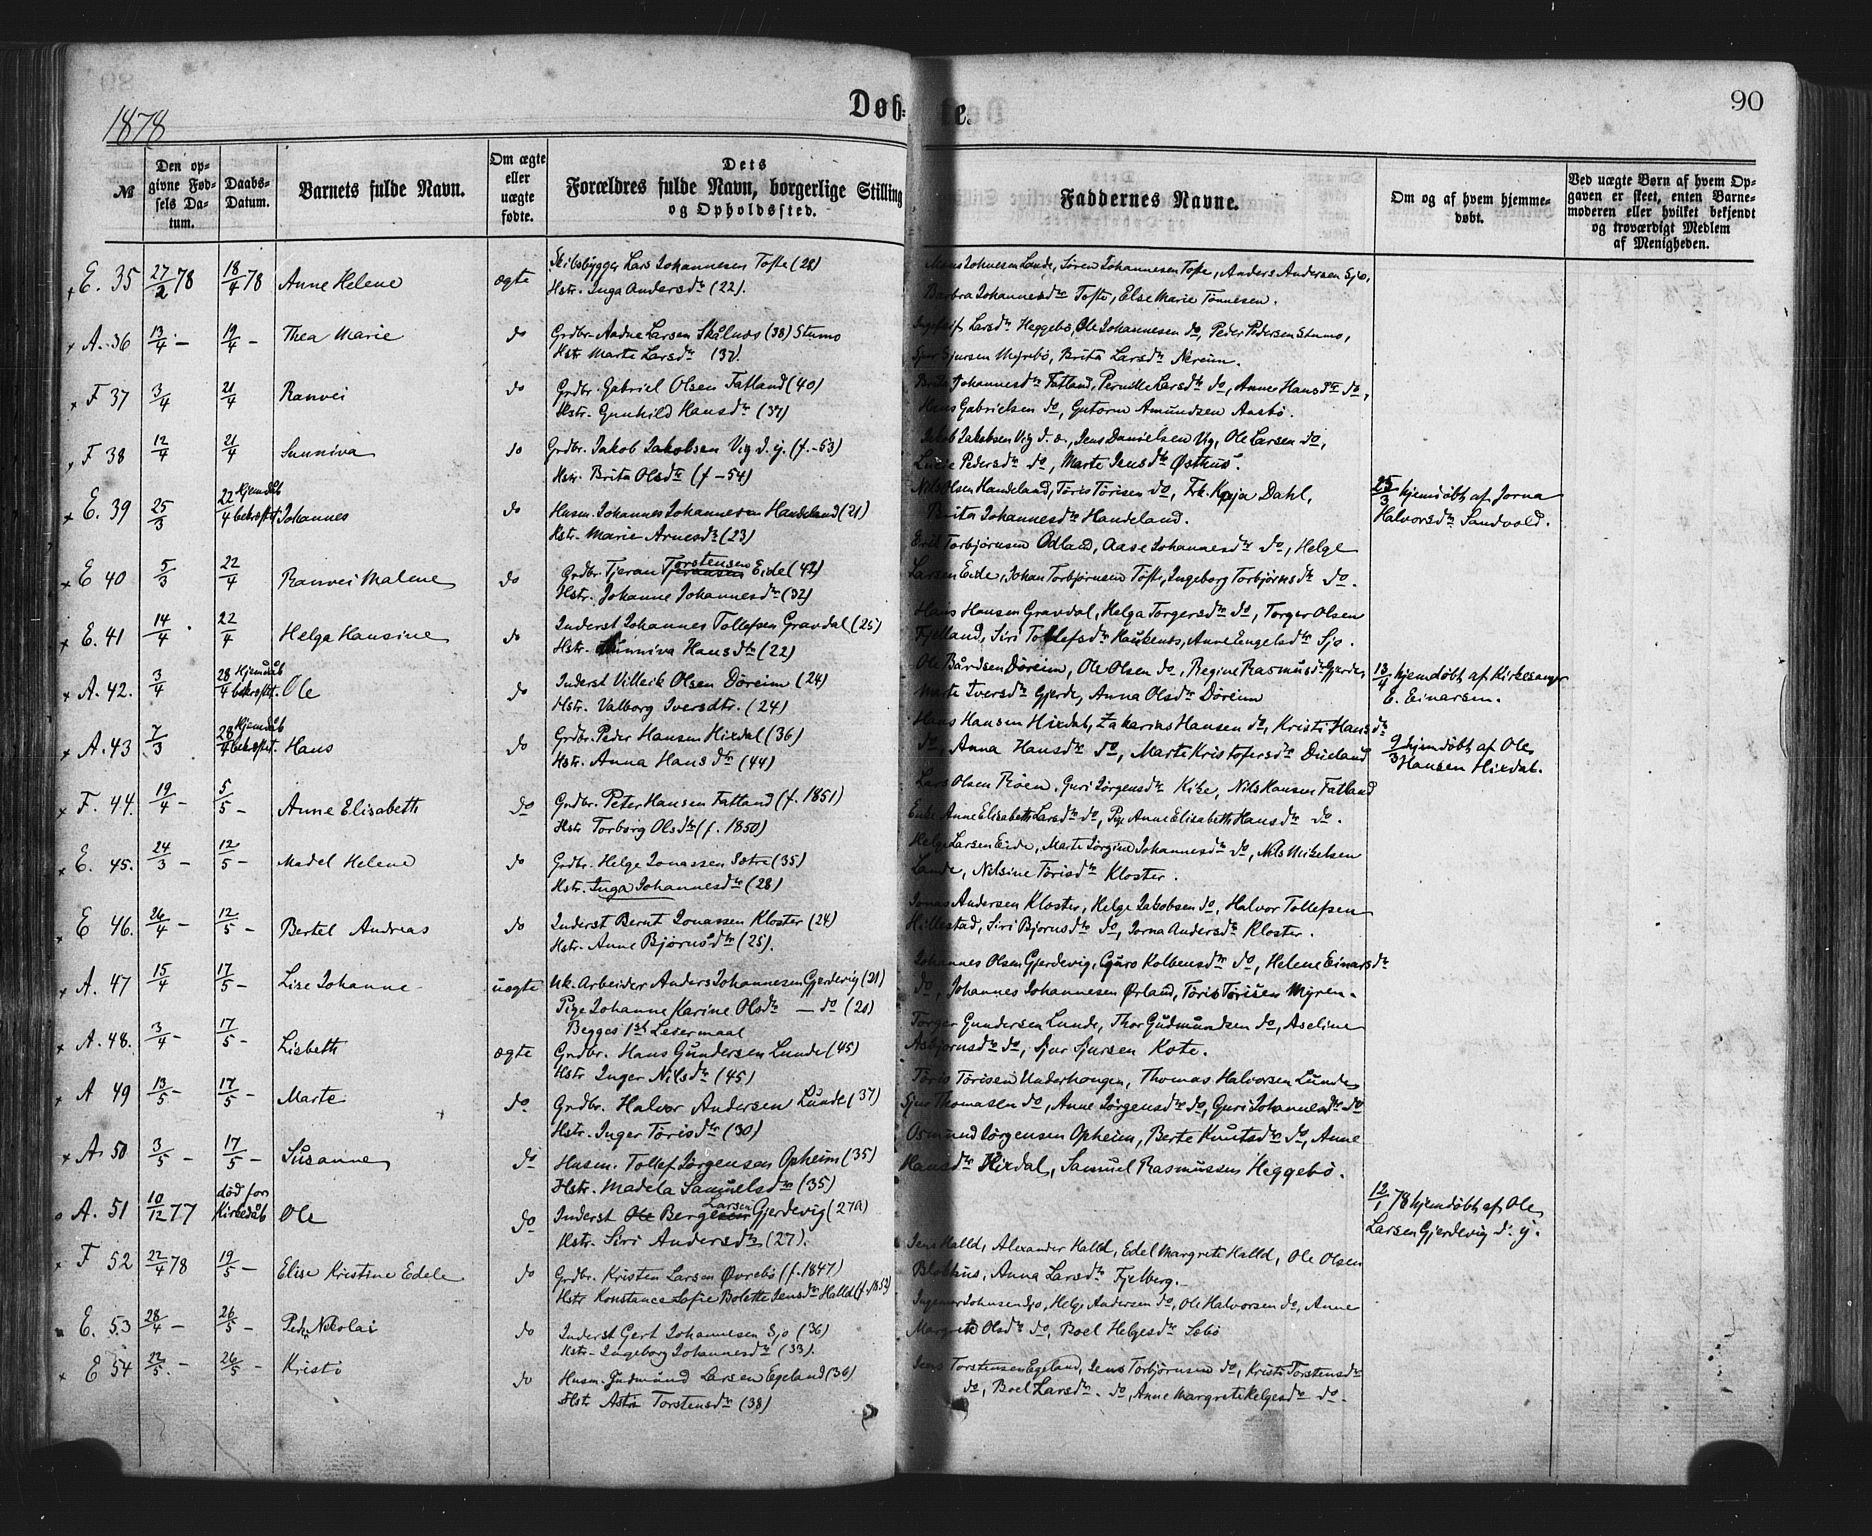 1878
Døbte.
90
№
Den opgivne Fødsels Datum.
Daabs-Datum.
Barnets fulde Navn.
Om ægte eller uægte fødte.
Dets Forældres fulde Navn, borgerlige Stilling og Opholdssted.
Faddernes Navne.
Om og af hvem hjemmedøbt.
Ved uægte Børn af hvem Opgaven er skeet, enten Barnemoderen eller hvilket bekjendt og troværdigt Medlem af Menigheden.
E. 35 27/2 78 18/4 78 Anne Helene ægte Skibsbygger Lars Johannesen Tofte (28)
Hstr. Inga Andersdtr (22).
Mons Johnesen Lande, Søren Johannesen Tofte, Anders Andersen Sjo,
Barbra Johannesdtr Tofte, Else Marie Tønnesen.
A. 36 13/4 – 19/4 – Thea Marie do Grdbr. Aadne Larsen Skålnes (38) Stumo
Hstr Marte Larsdtr (37).
Larsdtr Heggebø, Ole Johannesen do, Peder Pedersen Stumo,
Sjur Sjursen Myrebø, Brita Larsdtr Nereim.
F 37 3/4 21/4 Ranvei do Grdbr. Gabriel Olsen Fatland (40)
Hstr. Gunhild Hansdtr (37)
Brita Johannesdtr Fatland, Pernille Larsdtr do, Anne Hansdtr do,
Hans Gabrielsen do, Gutorm Amundsen Aasbø.
F 38 12/4 21/4 Sunniva do Grdbr. Jakob Jakobsen Vig d. y. (f. -53)
Hstr. Brita Olsdtr (f -54)
Jakob Jakobsen Vig d. æ., Jens Danielsen Vig, Ole Larsen do,
Pedersdtr do, Marte Jensdtr Østhus.
E. 39 25/3 22/4 Hjemdåb bekræftet. Johannes do Husm. Johannes Johannesen Handeland (21)
Hstr. Marie Arnesdtr (23)
Nils Olsen Handeland, Tøris Tørisen do, Frk. Kaja Dahl,
Brita Johannesdtr Handeland.
25/3 hjemdøbt af Jorna
Halvorsdtr Sandvold.
E 40 5/3 22/4 Ranvei Malene do Grdbr. Tjeran Tjeransen Torstensen Eide (42)
Hstr. Johanne Johannesdtr (32)
Erik Torbjørnsen Ødland, Aase Johannesdtr do, Helge
Larsen Eide, Johan Torbjørnsen Tofte, Ingeborg Torbjørnsdtr do.
E. 41 14/4 22/4 Helga Hansine do Inderst Johannes Tollefsen Gravdal (25)
Hstr. Sunniva Hansdtr (22)
Hans Hansen Gravdal, Helga Torgersdtr do, Torger Olsen
Fjelland, Siri Tollefsdtr Haukenes, Anne Engelsdtr Sjo.
A. 42. 3/4 28/4 Hjemdåb bekræftet. Ole do Inderst Villeik Olsen Døreim (24)
Hstr. Valborg Iversdtr. (24)
Ole Bårdsen Døreim, Ole Olsen do, Regine Rasmusdtr Gjerde,
Marte Iversdtr Gjerde, Anna Olsdtr Døreim
13/4 hjemdøbt af Kirkesanger
E. Einarsen.
A. 43 7/3 28/4 Hjemdåb bekræftet. Hans do Grdbr. Peder Hansen Hixdal (36)
Hstr. Anna Hansdtr (44)
Hans Hansen Hixdal, Zakarias Hansen do, Kristi Hansdtr
do, Anna Hansdtr do, Marte Kristofersdtr Dueland
9/3 hjemdøbt af Ole
Hansen Hixdal.
F. 44. 19/4 – 5/5 – Anne Elisabeth do Grdbr. Peter Hansen Fatland (f. 1851)
Hstr Torborg Olsdtr (f. 1850)
Lars Olsen Røen, Guri Jørgensdtr Kike, Nils Hansen Fatland
Enke Anne Elisabeth Larsdtr do, Pige Anne Elisabeth Hansdtr do.
E. 45. 24/3 – 12/5 – Madel Helene do Grdbr. Helge Jonassen Sætre (35)
Hstr. Inga Johannesdtr (28)
Helge Larsen Eide, Marte Jørgine Johannesdtr do, Nils Mikelsen
Lande, Nilsine Tørisdtr Kloster.
E 46. 26/4 – 12/5 – Bertel Andreas do Inderst Bernt Jonassen Kloster (24)
Hstr. Anne Bjørnsdtr (25).
Jonas Andersen Kloster, Helge Jakobsen do, Halvor Tollefsen
Hillestad, Siri Bjørnsdtr do, Jorna Andersdtr Kloster.
A. 47 15/4 17/5 – Lise Johanne uægte Uk. Arbeider Anders Johannesen Gjerdevig (21)
Pige Johanne Karine Olsdtr – do (20)
Begges 1ste Leiermaal
Johannes Olsen Gjerdevig, Guro Kolbensdtr do, Helene Einarsdtr
do, Johannes Johannesen Ørland, Tøris Tørisen Myren.
A. 48. 3/4 – 17/5 – Lisbeth ægte Grdbr. Hans Gundersen Lunde (45)
Hstr Inger Nilsdtr (45)
Torger Gundersen Lunde, Thor Gudmundsen do, Aseline
Asbjørnsdtr do, Sjur Sjursen Kote.
A 49 13/5 – 17/5 – Marte do. Grdbr. Halvor Andersen Lunde (37)
Hstr. Inger Tørisdtr (30)
Tøris Tørisen Underhaugen, Thomas Halvorsen Lunde
Sjur Thomasen do, Anne Jørgensdtr do, Guri Johannesdtr do
A. 50 3/5 – 17/5 – Susanne do Husm. Tollef Jørgensen Opheim (35)
Hstr. Madela Samuelsdtr (35)
Osmund Jørgensen Opheim, Berte Knutsdtr do, Anne
Hansdtr Hixdal, Samuel Rasmussen Heggebø.
A. 51 10/12 77 død før Kirkedåb Ole do Inderst Ole Bergesen Larsen Gjerdevig (27A)
Hstr. Siri Andersdtr (27).
12/1 78 hjemdøbt af Ole
Larsen Gjerdevig d. y.
F 52 22/4 78 19/5 – Elise Kristine Edele do Grdbr. Kristen Larsen Øvrebø (f. 1847)
Hstr Konstance Sofie Bolette Jensdtr Halld (f. 1853)
Jens Halld, Alexander Halld, Edel Margrete Halld, Ole Olsen
Blokhus, Anna Larsdtr Fjelberg.
E. 53 28/4 – 26/5 – Peder Nikolai do Inderst Gert Johannesen Sjo (36)
Hstr. Ingeborg Johannesdtr (33).
Ingemar Johnsen Sjo, Helge Andersen do, Ole Halvorsen do, Anne
Margrete Olsdtr do, Boel Helgesdtr Sæbø
E 54 22/5. – 26/5 – Kristi do Husm. Gudmund Larsen Egeland (36)
Hstr Astri Torstensdtr (38)
Jens Torstensen Egeland, Jens Torbjørnsen do, Kristi Torstensdtr
do, Boel Larsdtr. do, Anne Margrete Helgesdtr do.